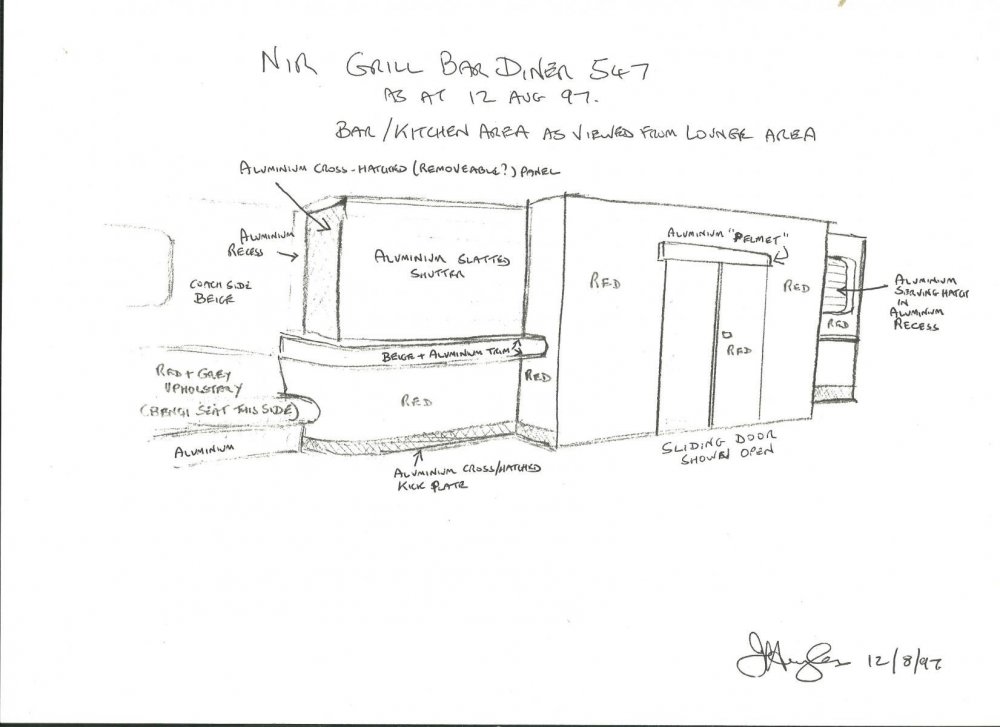 NIR GRILL BAR DINER 547
AS AT 12 AUG 97.
BAR/KITCHEN AREA AS VIEWED FROM LOUNGE AREA
ALUMINIUM CROSS-HATCHED (REMOVEABLE?) PANEL
ALUMINIUM
RECESS
COACH SIDE
BEIGE
ALUMINIUM SLATTED
SHUTTER
ALUMINIUM "PELMET"
RED
RED
RED
ALUMINIUM
SERVING HATCH
IN
ALUMINIUM
RECESS
RED
BEIGE + ALUMINIUM TRIM
RED
RED
RED + GREY
UPHOLSTERY
(BENCH SEAT THIS SIDE)
ALUMINIUM
ALUMINIUM CROSS/HATCHED
KICK PLATE
SLIDING DOOR
SHOWN OPEN
12/8/97